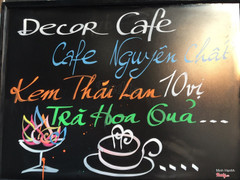 Decor Cafe
Cafe Nguyên Chất
Kem Thái Lan 10 vị
Trà Hoa Quả...